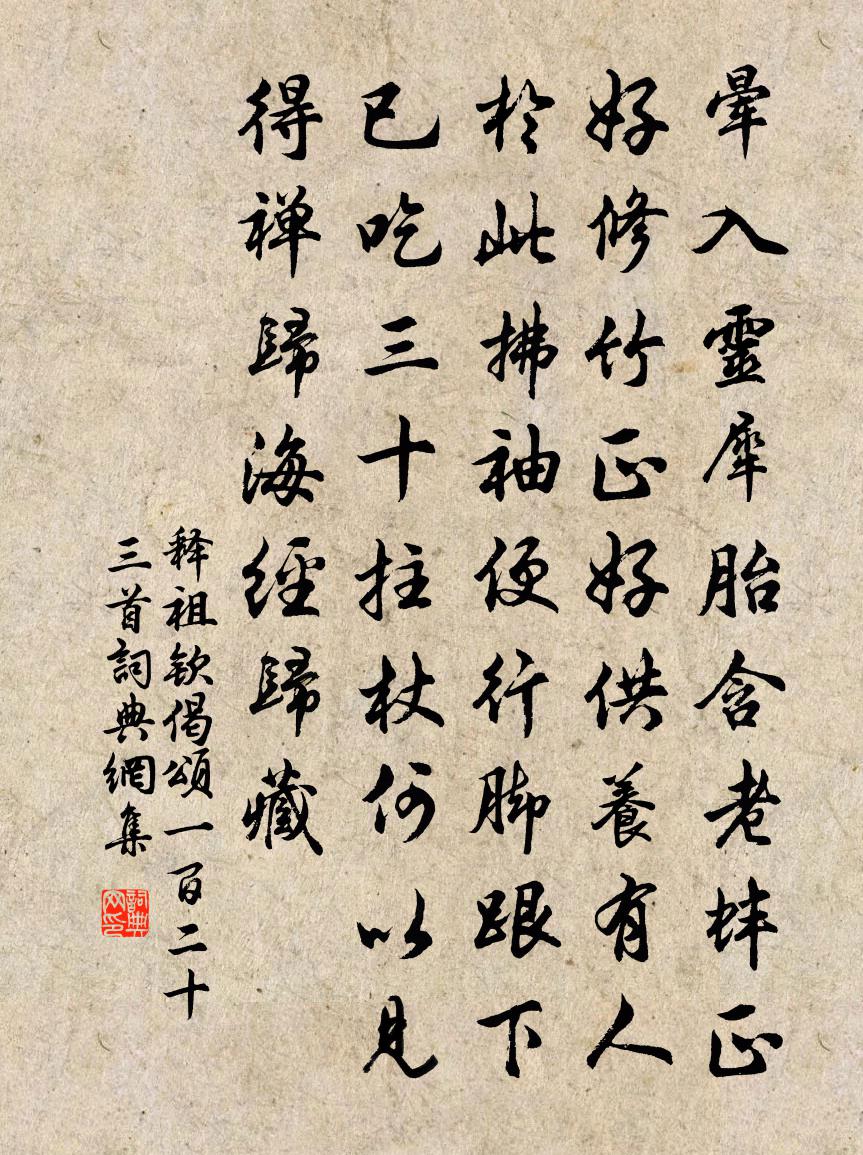 暈入靈犀胎含老蚌正
好修竹正好供養有人
於此拂袖便行脚跟下
已吃三十拄杖何以見
得禅歸海經歸藏
释祖欽偈頌一百二十
三首詞典網集
詞典网印